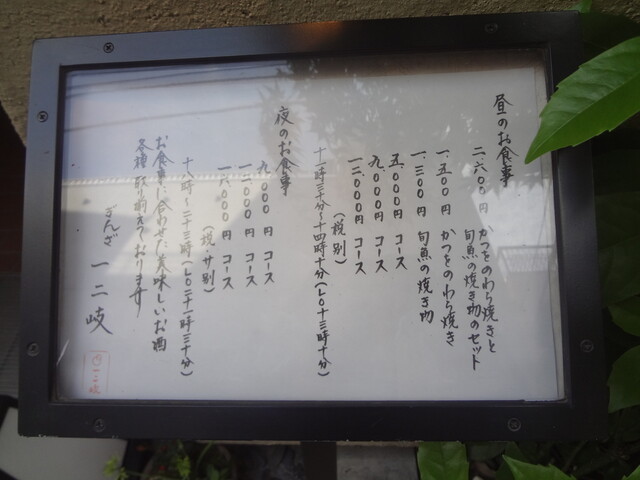 昼のお食事
二、六〇〇円 かつをのわら焼きと
旬魚の焼き物のセット
一、五〇〇円 かつをのわら焼き
一、三〇〇円 旬魚の焼き物
五、〇〇〇円 コース
九、〇〇〇円 コース
一二、〇〇〇円 コース
(税別)
十一時三十分~十四時十分(L.O十三時十分)
夜のお食事
九、〇〇〇円 コース
一二、〇〇〇円 コース
一六、〇〇〇円 コース
(税・サ別)
十八時~二十三時(L.O二十一時三十分)
お食事に合わせた美味しいお酒
各種取り揃えております
ぎんざ 一二岐